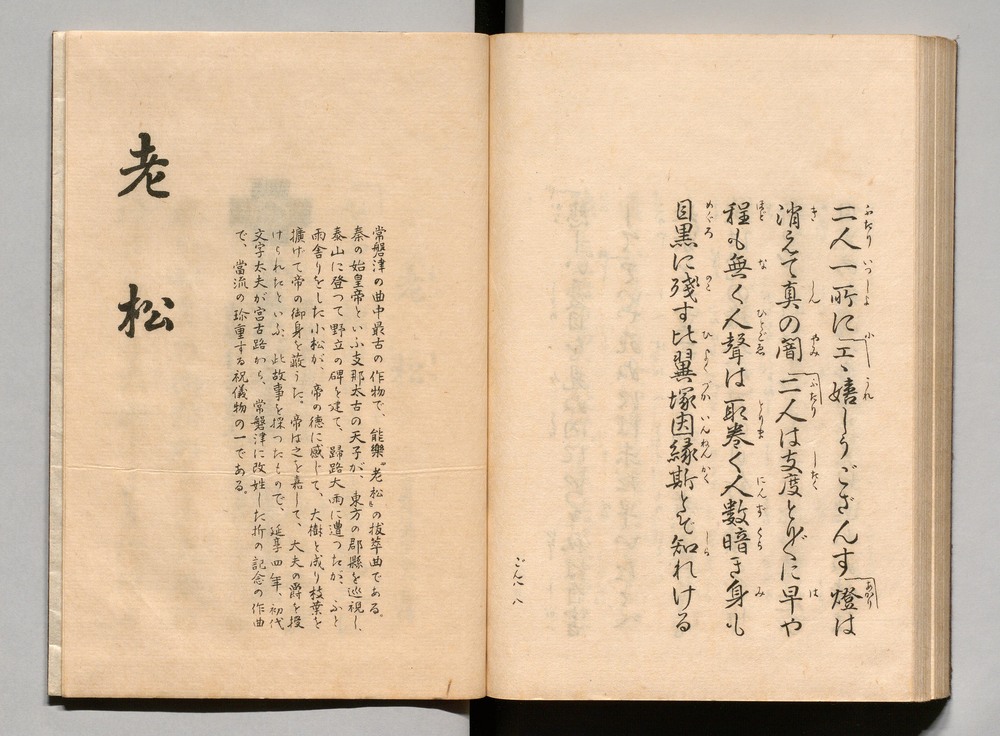 二人一所にエヽ嬉しうござんす燈は
消えて真の闇二人は支度とり〴〵に早や
程も無く人聲は取巻く人数暗き身も
目黒に殘す比翼塚因縁斯とぞ知れける
ごんぺ 八
老松
常磐津の曲中最古の作物で、能樂〝老松〟の抜萃曲である。
秦の始皇帝といふ支那太古の天子が、東方の郡縣を巡視し、
泰山に登つて野立の碑を建て、歸路大雨に遭つたが、ふと
雨舎りをした小松が、帝の徳に感じて、大樹と成り枝葉を
擴げて帝の御身を蔽うた。帝は之を嘉して、大夫の爵を授
けられたといふ、此故事を採つたもので、延享四年、初代
文字太夫が宮古路から、常磐津に改姓した折の記念の作曲
で、當流の珍重する祝儀物の一である。